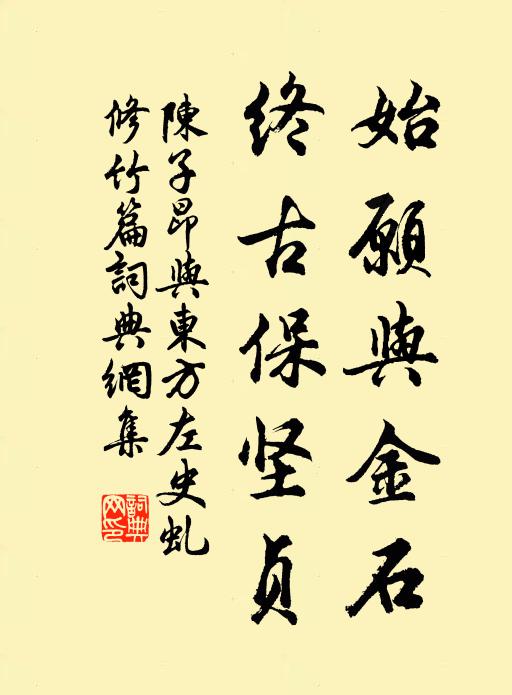 始願與金石
終古保坚贞
陳子昂與東方左史虬
修竹篇詞典網集
詞典
网印